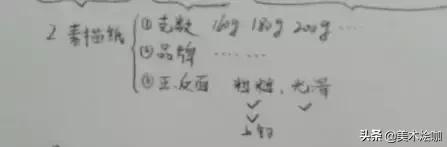 2 素描纸 ① 克数 160g 180g 200g ……
② 品牌 ……
③ 正.反面 粗糙、光滑
头条 @美术烩咖